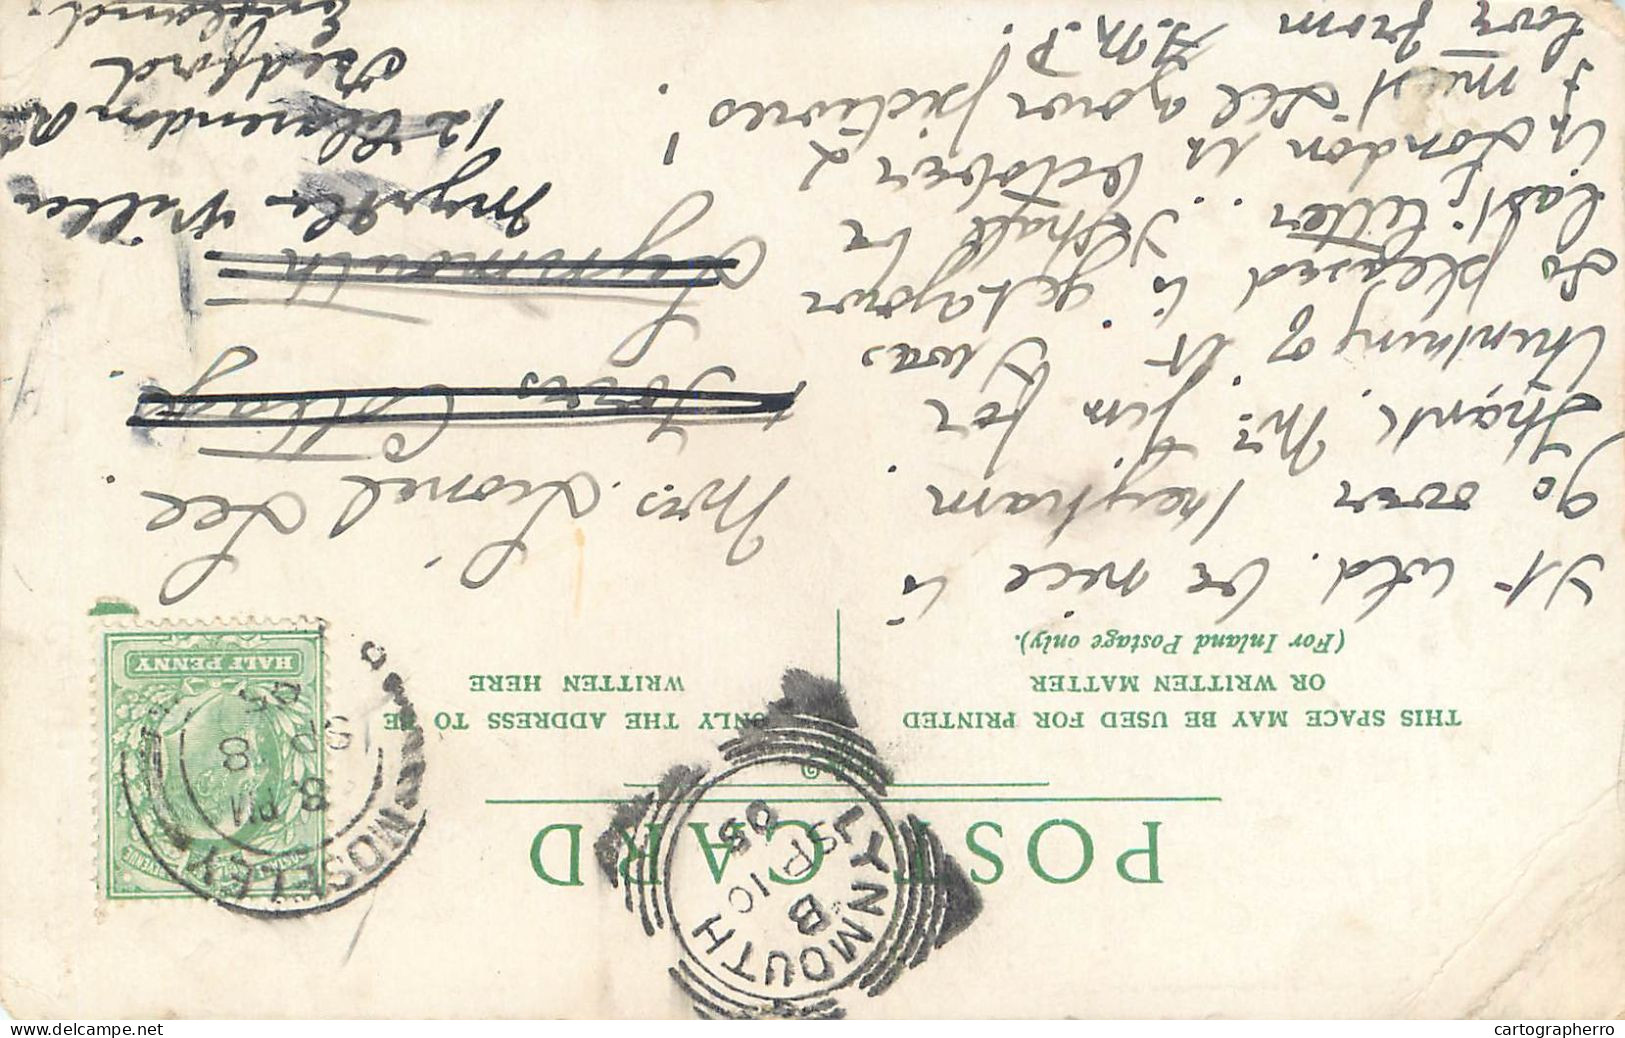 POST CARD
THIS SPACE MAY BE USED FOR PRINTED
OR WRITTEN MATTER
(For Inland Postage only).
ONLY THE ADDRESS TO BE
WRITTEN HERE
HALF PENNY
POSTAGE REVENUE
MOSELEY
8 PM
SP 8
05
LYNMOUTH
B
SP 10
05
It wld. be nice to
go over
Thank Mr. Jim for
thinking of it. I was
so pleased to get your
last letter. I shall be
in London in October &
I must see your pictures!
Love from
Mrs. Lionel Lee.
Cottage
Lynmouth
Myrtle Villa
12 Clarendon
Bedford
England.
delcampe.net
cartographerro